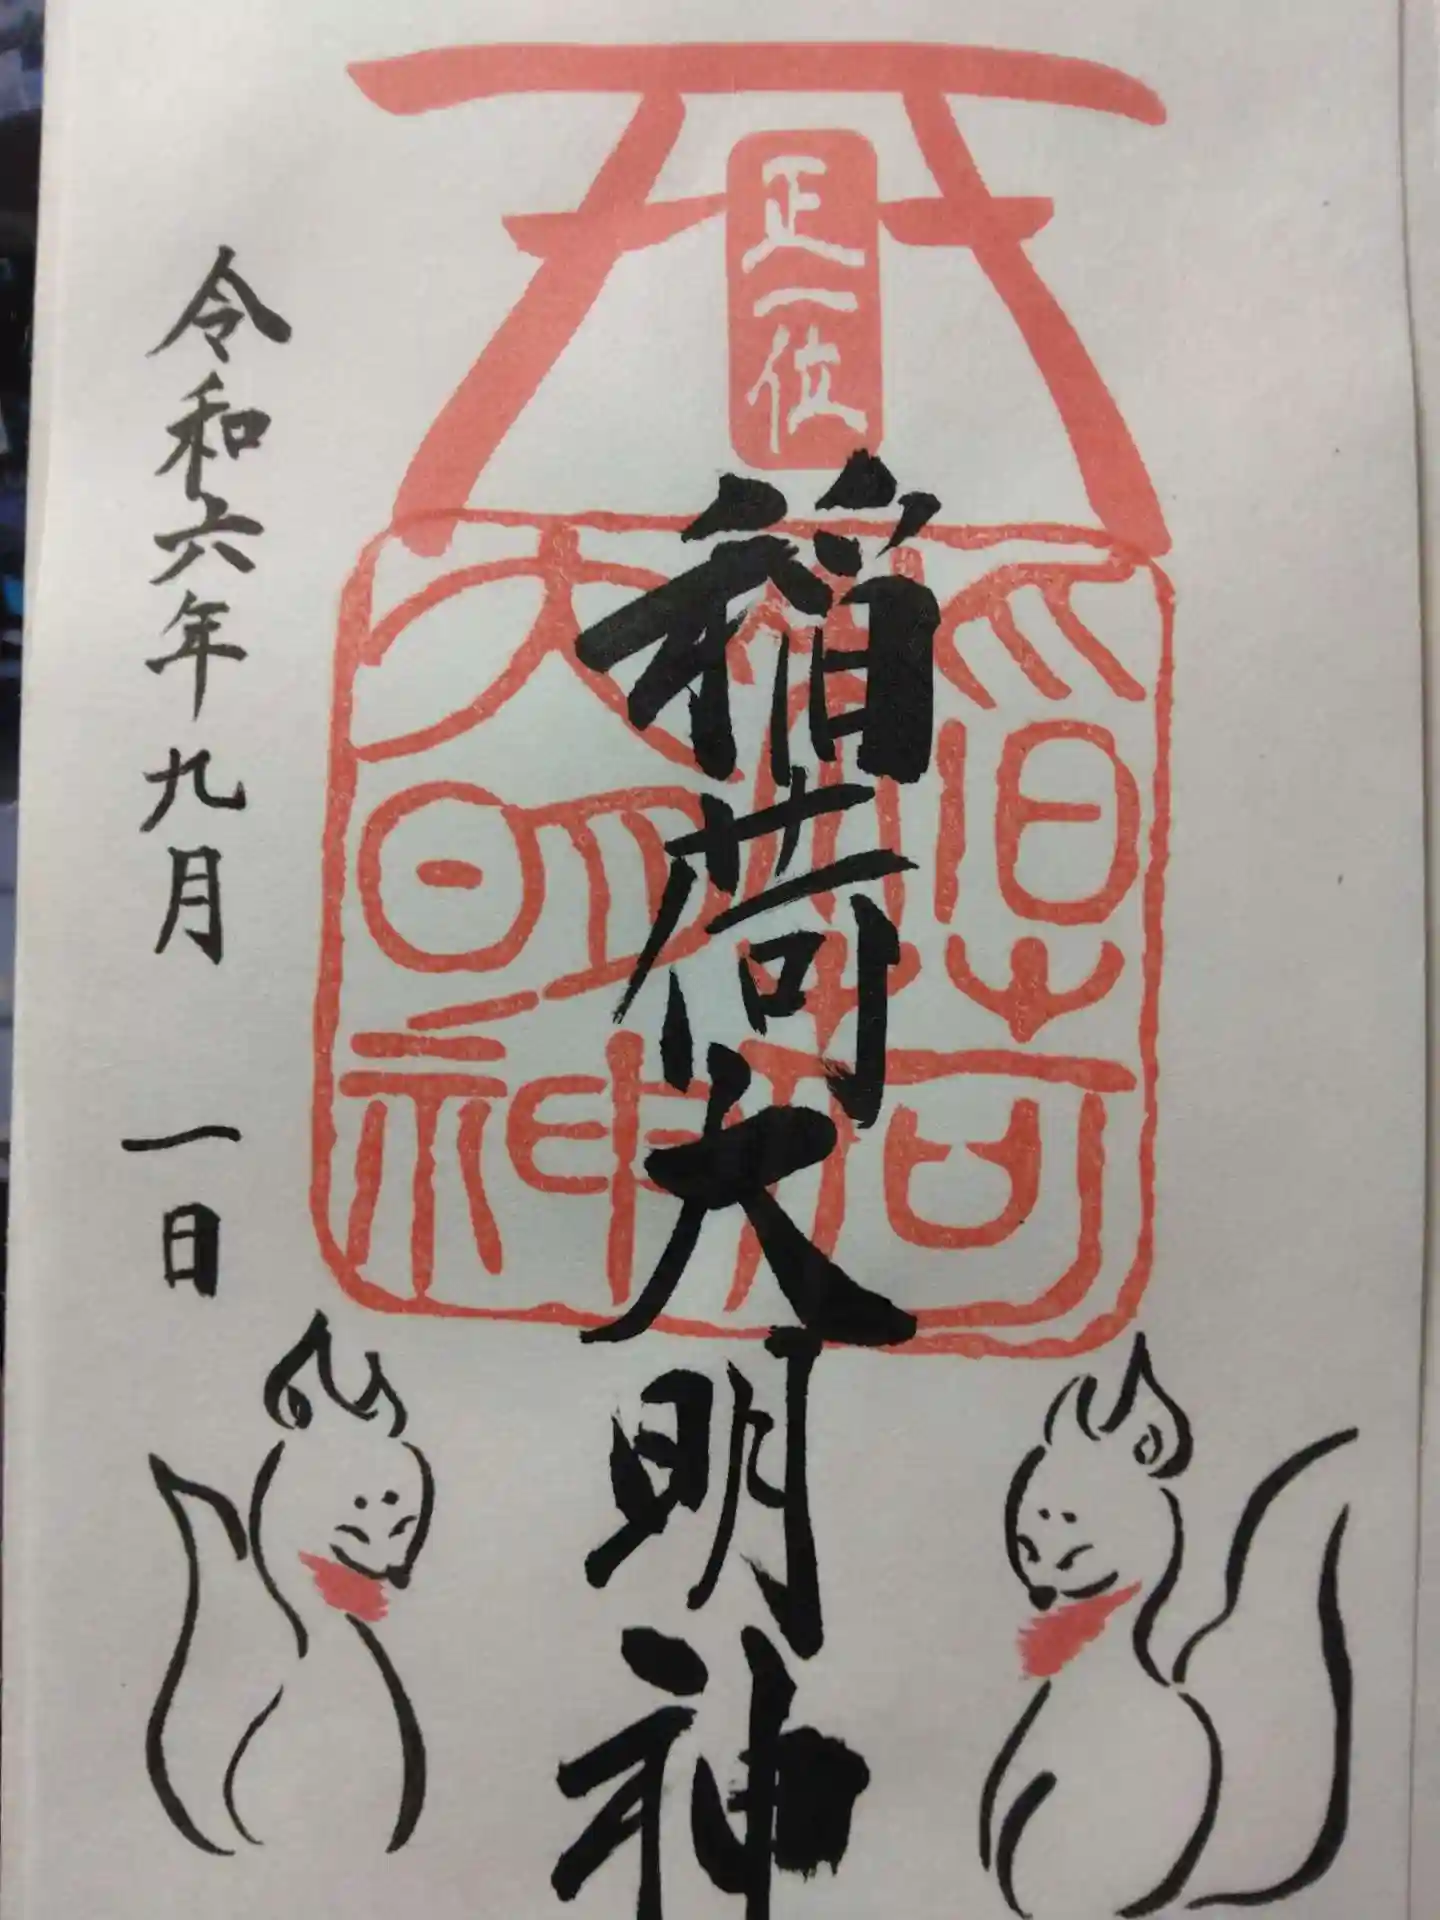 正一位
稲荷大明神
稲荷大明神
令和六年九月一日